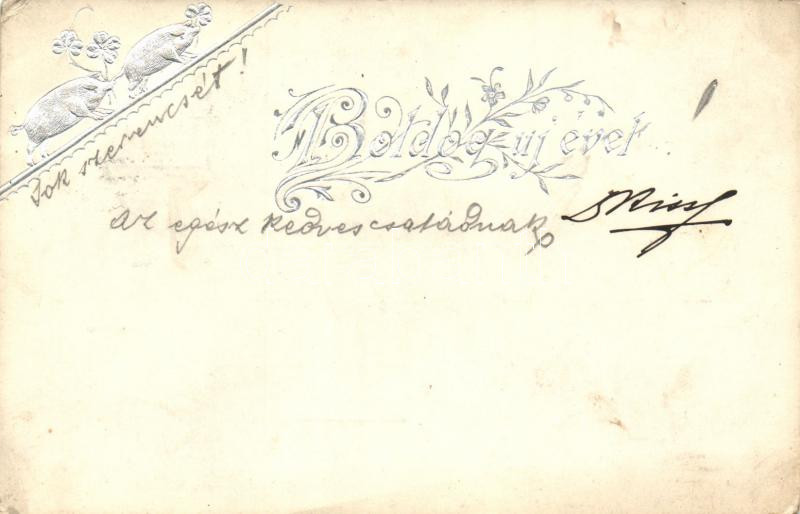 Sok szerencsét!
Boldog új évet!
az egész kedves családnak